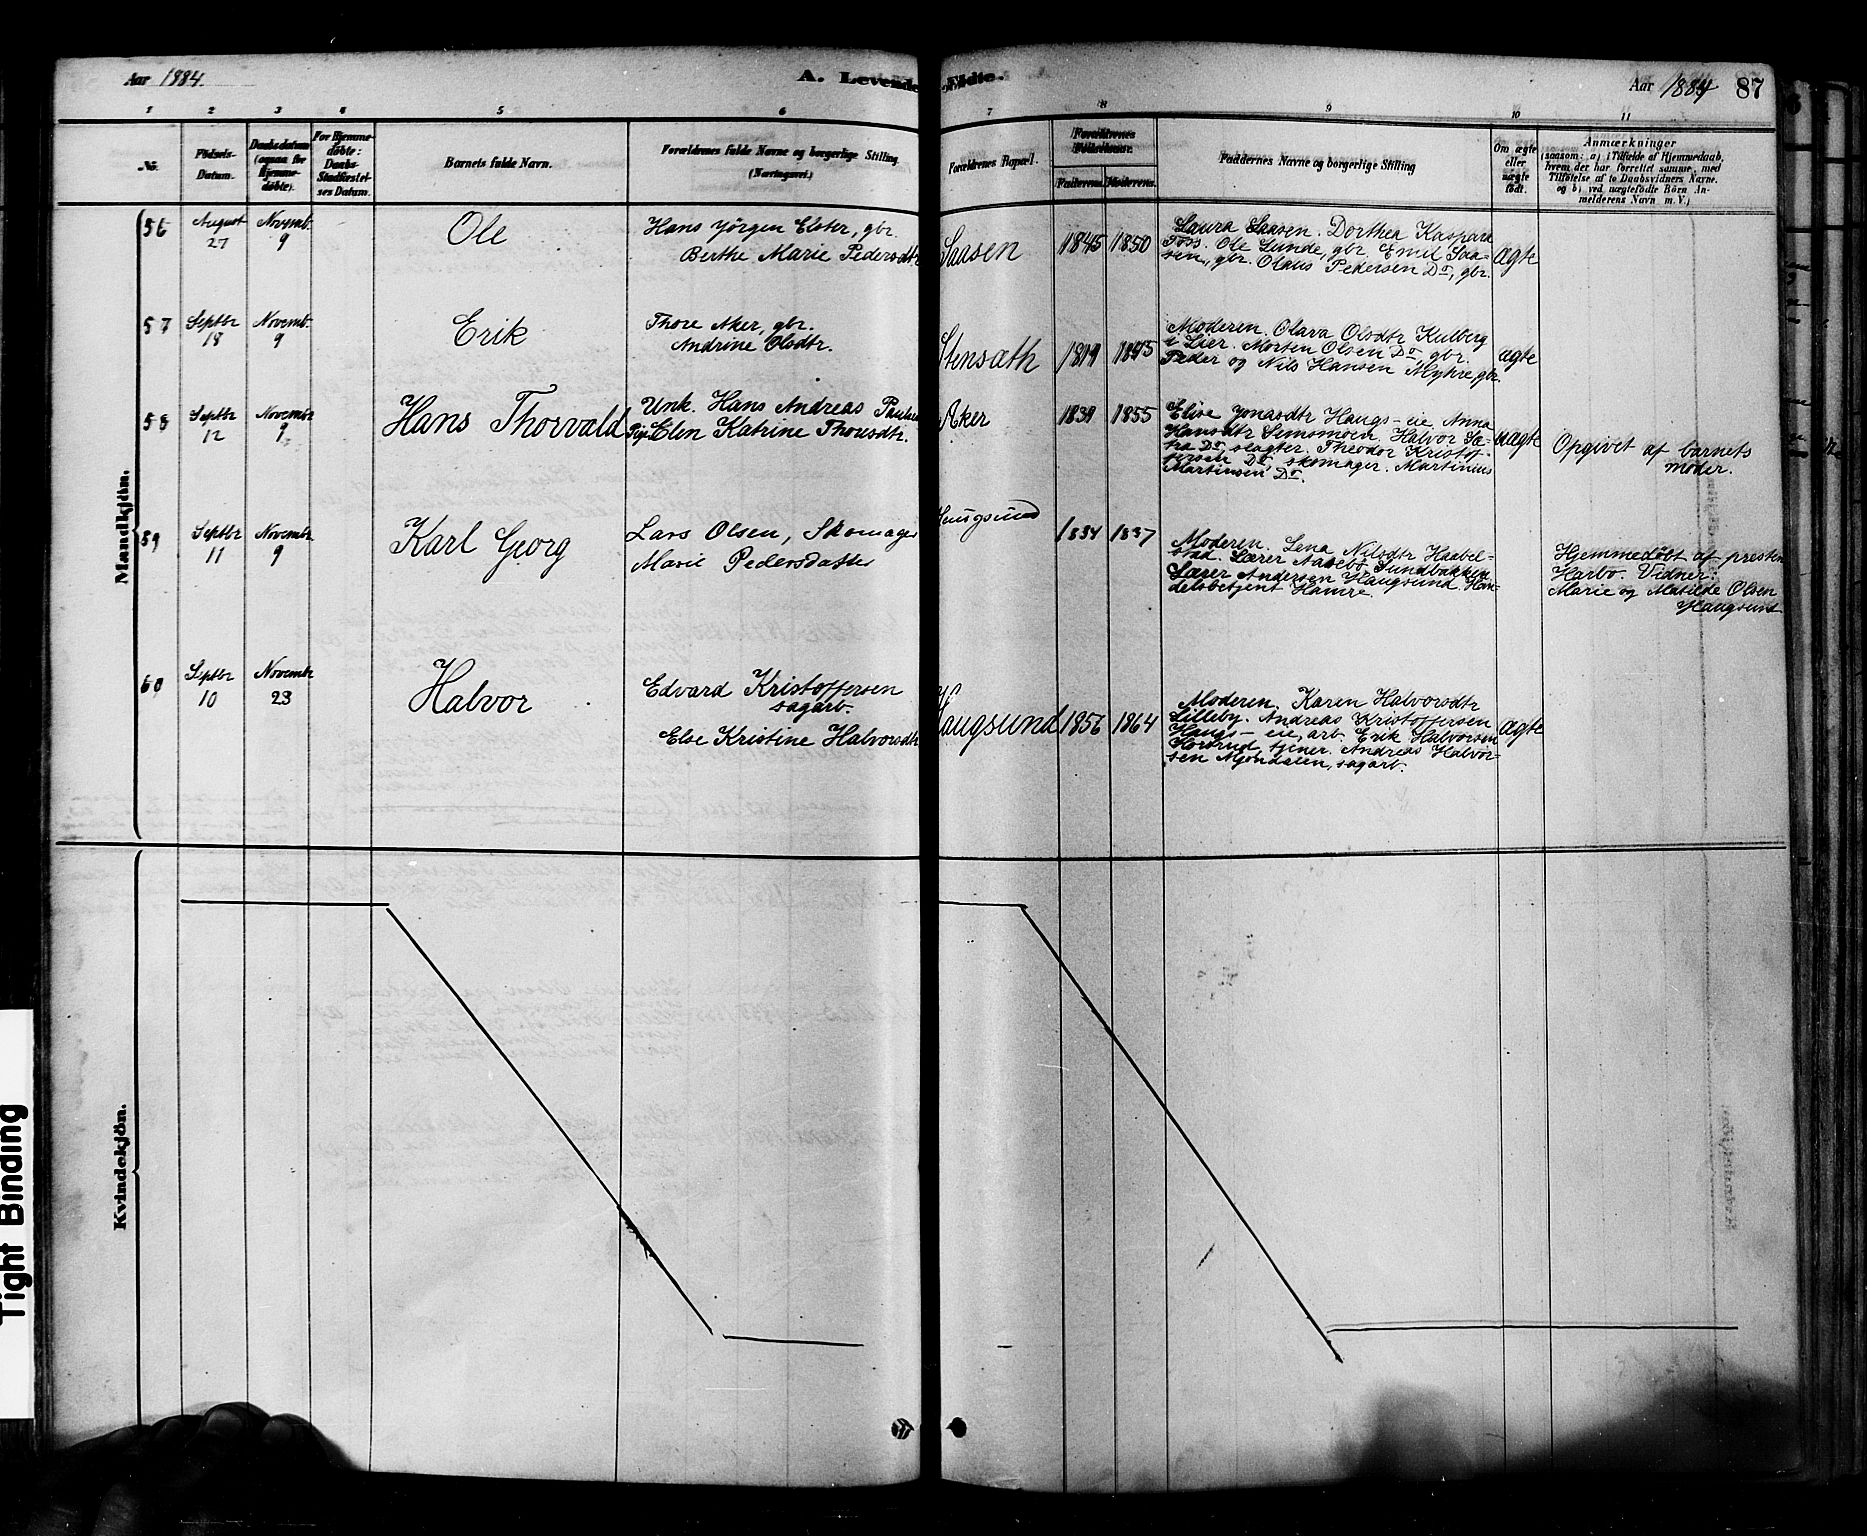 Aar 1884.
A. Levende Fødte.
Aar 1884
87
1 2 3 4 5 6 7 8 9 10 11
No.
Fødsels-Datum.
Daabsdatum (ogsaa for Hjemme-døbte).
For Hjemme-døbte: Daabs-Stadfæstel-ses Datum.
Barnets fulde Navn.
Forældrenes fulde Navne og borgerlige Stilling
(Næringsvei.)
Forældrenes Bopæl.
Forældrenes Fødselsaar.
Faderens. Moderens.
Faddernes Navne og borgerlige Stilling
Om ægte eller uægte født.
Anmærkninger
(saasom: a) i Tilfælde af Hjemmedaab,
hvem der har forrettet samme, med
Tilføielse af to Daabsvidners Navne.
og b) ved uægtefødte Børn An-
melderens Navn m. V.)
Mandkjøn.
56
August
27
Novemb.
9
Ole
Hans Jörgen Elster, gbr.
Berthe Marie Pedersdtr
Saasen
1845 1850
Laura Saasen. Dorthea Kaspara
Foss. Ole Lunde, gbr. Emil Saa-
sen, gbr. Olaus Pedersen Do, gbr.
ægte
57
Septbr
18
Novemb.
9
Erik
Thore Aker, gbr.
Andrine Olsdtr.
Stensæth
1819 1845
Moderen. Olava Olsdtr Kulberg
i Lier. Morten Olsen Do, gbr.
Peder og Nils Hansen Myhre, gbr.
ægte
58
Septbr
12
Novembr
9
Hans Thorvald
Unk. Hans Andreas Paulsen
Pige Elen Katrine Thoresdtr.
Aker
1839 1855
Elise Jonasdtr Haugs-eie Anna
Hansdtr Semsmoen. Halvor Sæ-
tra Do, slagter. Theodor Kristof-
fersen Do, skomager. Martinius
Martinsen Do.
uægte
Opgivet af barnets
moder.
59
Septbr
11
Novembr
9
Karl Georg
Lars Olsen, Skomager
Marie Pedersdatter
Haugsund
1834 1837
Moderen. Lena Nilsdtr Haabel-
stad. Lærer Aasebø Sundbakken
Lærer Andersen Haugsund. Han-
delsbetjent Hamre.
Hjemmedøbt af presten
Harbo. Vidner:
Marie og Matilde Olsen
Haugsund
60
Septbr
10
Novembr
23
Halvor
Edvard Kristoffersen
sagarb.
Else Kristine Halvorsdtr
Haugsund
1856 1864
Moderen. Karen Halvorsdtr
Lilleby. Andreas Kristoffersen
Haugs-eie, arb. Erik Halvorsen
Horsrud, tjener. Andreas Halvor-
sen Mjøndalen, sagarb.
ægte
Kvindekjøn.
Tight Binding